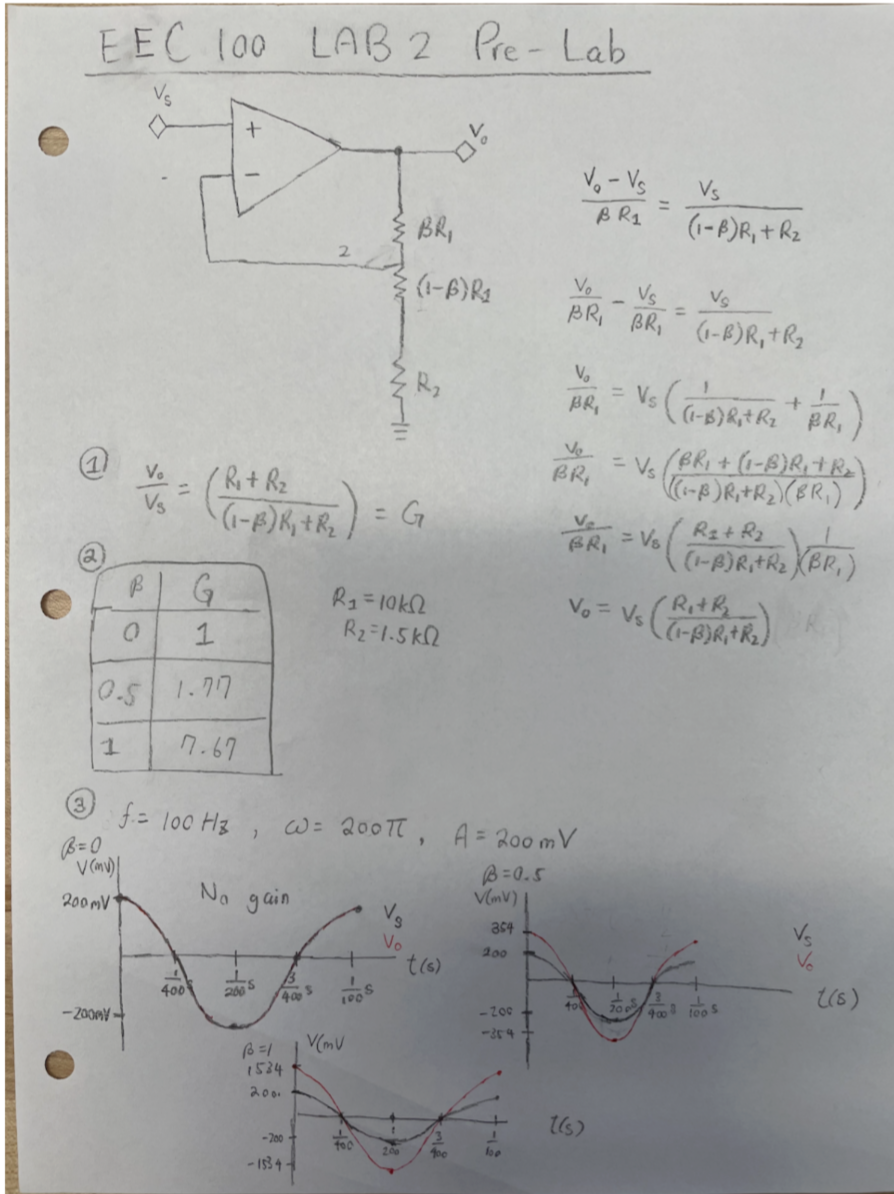 EEC 100 LAB 2 Pre-Lab
Vs
+
-
Vo
βR₁
2
(1-β)R1
R₂
(Vo - Vs)/(βR1) = Vs/((1-β)R₁+R₂)
Vo/(βR₁) - Vs/(βR₁) = Vs/((1-β)R₁+R₂)
Vo/(βR₁) = Vs(1/((1-β)R₁+R₂) + 1/(βR₁))
Vo/(βR₁) = Vs((βR₁+(1-β)R₁+R₂)/(((1-β)R₁+R₂)(βR₁)))
Vo/(βR₁) = Vs((R1+R₂)/((1-β)R₁+R₂))(1/(βR₁))
Vo = Vs((R₁+R₂)/((1-β)R₁+R₂))
① Vo/Vs = ((R₁+R₂)/((1-β)R₁+R₂)) = G
②
β G
0 1
0.5 1.77
1 7.67
R1=10kΩ
R₂=1.5kΩ
③ f=100Hz, ω=200π, A=200mV
β=0
V(mV)
200mV
No gain
Vs
Vo
1/400 s 1/200 s 3/400 s 1/100 s
t(s)
-200mV
β=0.5
V(mV)
354
200
Vs
Vo
1/400 1/200 s 3/400 s 1/100 s
t(s)
-200
-354
β=1
V(mV
1534
200
1/400 1/200 3/400 1/100
t(s)
-200
-1534